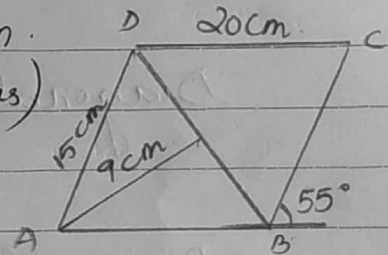 n.
D 20cm C
es)
15cm
9cm
55°
A B